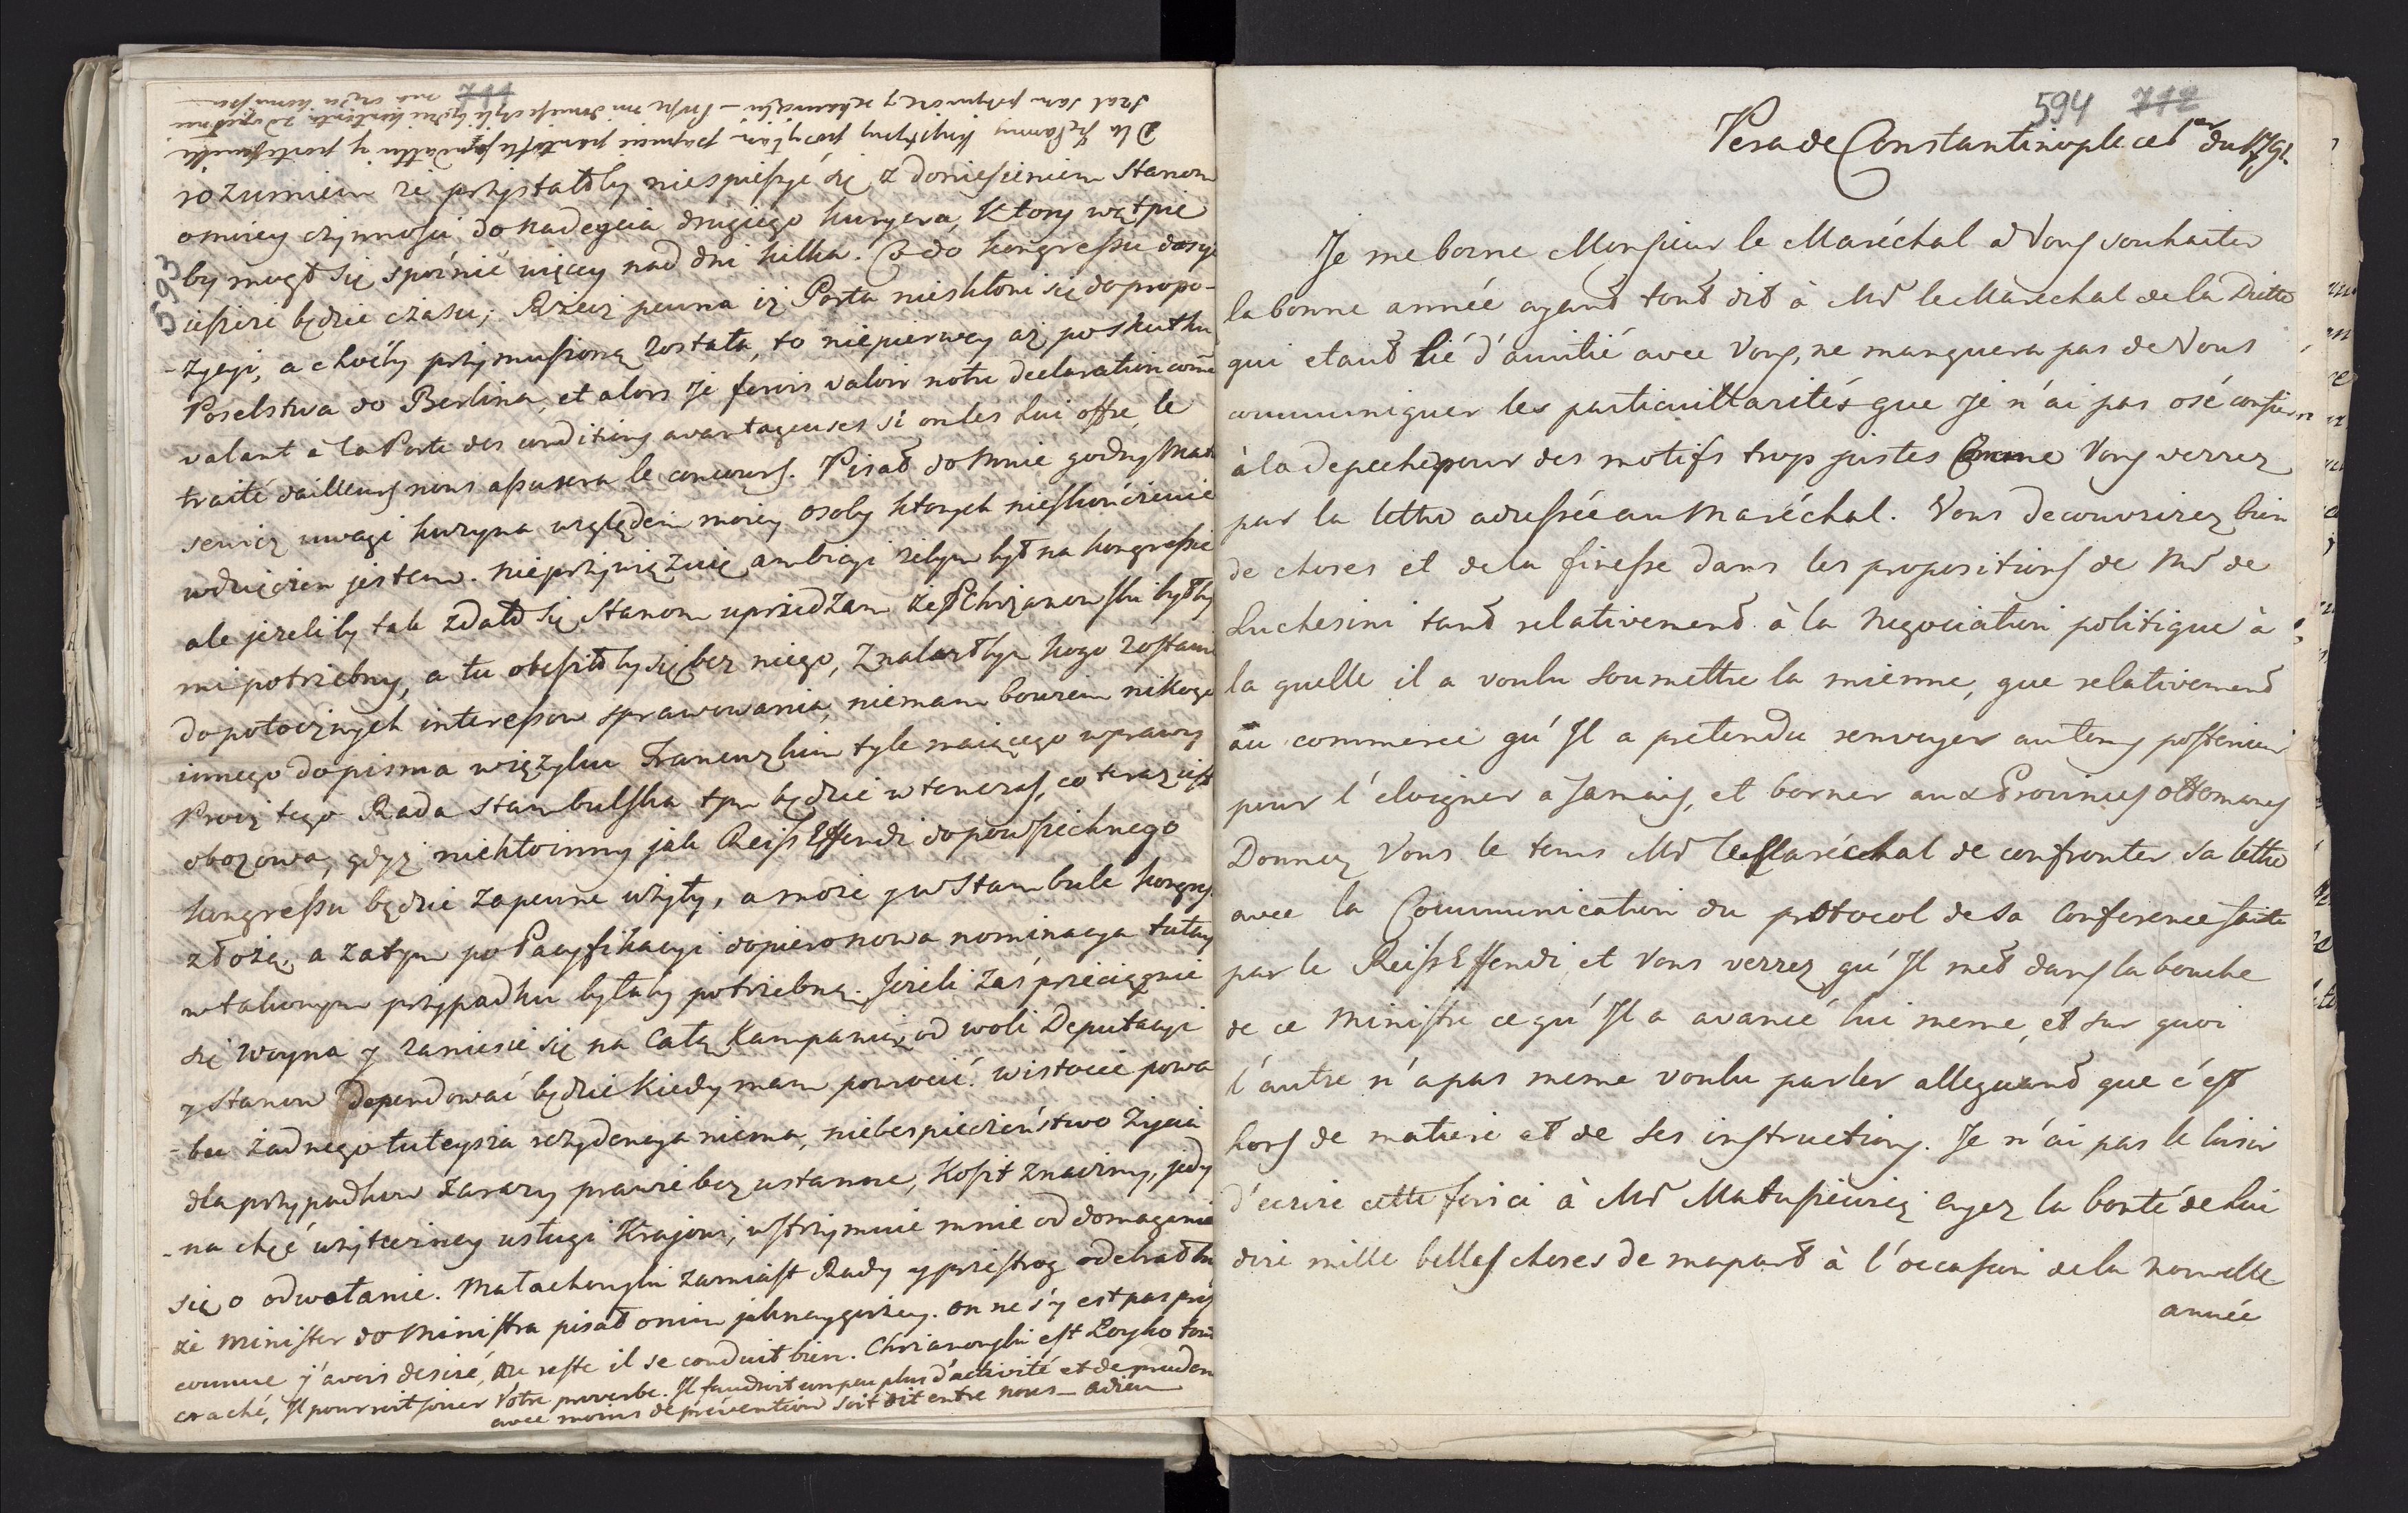 711
Dla
szal
593
rozumiem że przystałoby niespieszyć się z doniesieniem Stanom
o moiey czynności do nadeyścia drugiego kuryera, ktory wątpię
by mogł się spoźnić więcey nad dni kilka. Co do kongressu dosyć
ieszcze będzie czasu; Rzecz pewna iż Porta nieskłoni się do propo-
-zycyi, a choćby przymuszoną została, to niepierwey aż po skutku
Poselstwa do Berlina, et alors je ferois valoir notre declaration comme
valant à la Porte des conditions avantageuses si on les lui offre, le
traité dailleurs nous assurera le concours. Pisał do mnie godny Matu
sewicz uwagi kuzyna względem moiey osoby ktorych nieskończenie
wdzięczen jestem. nieprzywiązuię ambicyi żebym był na kongressie
ale jezeliby tak zdało się Stanom uprzedzam że P Chrzanowski byłby
mi potrzebny, a tu obeszłoby się bez niego, znalazłbym kogo zostawić
do potocznych interessow sprawowania, niemam bowiem nikogo
innego do pisma w ięzyku Francuzkim tyle maiącego wprawy
Procz tego Rada stambulska tym będzie w tenczas, co teraz iest
obozowa, gdyż nikt inny jak Reiss Effendi do powszechnego
kongressu będzie zapewne użyty, a może y w Stambule kongres
złożą, a zatym po Pacyfikacyi dopiero nowa nominacya tutay
w takowym przypadku byłaby potrzebna. Jeżeli zaś przeciągnie
się woyna y zaniesie się na całą kampanię, od woli Deputacyi
y Stanow dependować będzie kiedy mam powrocić. w istocie powa
-bu żadnego tuteysza rezydencya niema, niebespieczeństwo życia
dla przypadkow zarazy prawie bez ustanne, koszt znaczny, jedy
-na chęć użyteczney usługi Krajowi, wstrzymuie mnie od domagania
się o odwołanie. Małachowski zamiast Rady y przestrog odebrał
że Minister do Ministra pisał o nim jaknaygorzey. on ne s'y est pas pris
comme j'avois desiré, au reste il se conduit bien. Chrzanowski est Łoyko tout
craché, Il pourroit jouer Votre proverbe. Il faudroit un peu plus d'activité et de pruden
avec moins de prevention soit dit entre nous – adieu
594 712
Pera de Constantinople ce 1er du 1791.
Je me borne Monsieur le Maréchal à Vous souhaiter
la bonne année ayant tout dit à Mr le Maréchal de la Diette
qui etant lié d'amitié avec Vous, ne manquera pas de Vous
communiquer les particullarités que Je n'ai pas osé confier
à la depeche pour des motifs trop justes Comme Vous verrez
par la lettre adressée au Maréchal. Vous decouvrirez bien
de choses et de la finesse dans les propositions de Mr de
Luchesini tant relativement à la Negociation politique à
la quelle il a voulu soumettre la mienne, que relativement
au commerce qu'Il a pretendu renvoyer au tems posterieur
pour l'eloigner a Jamais, et borner aux Provinces ottomanes
Donnez Vous le tems Mr le Maréchal de confronter sa lettre
avec la Communication du protocol de sa Conference faite
par le Reiss Effendi, et Vous verrez qu'Il met dans la bouche
de ce Ministre ce qu'Il a avancé lui meme, et sur quoi
l'autre n'a pas meme voulu parler alleguant que c'est
hors de matiere et de ses instructions. Je n'ai pas le loisir
d'ecrire cette fois ci à Mr Matuszewicz ayez la bonté de Lui
dire mille belles choses de ma part à l'occasion de la nouvelle
année